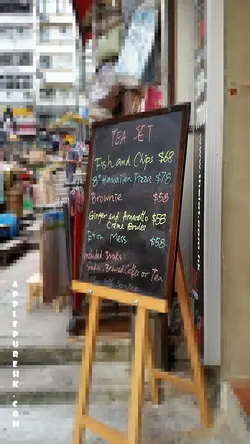 TEA SET
Fish and Chips $68
8" Hawaiian Pizza $78
Brownie $58
Ginger and Amaretto $58
Crème Brulee
Eton Mess $58
Included Drinks:
Soda, Brewed Coffee or Tea
APPLEPUREHK.COM